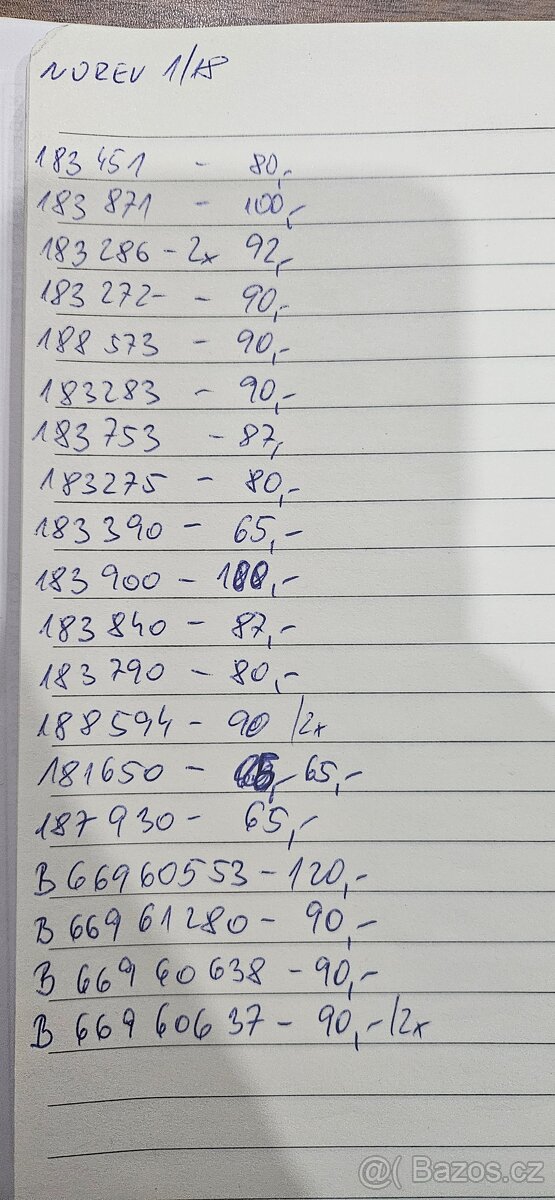 NOREV 1/18
183 451 - 80,-
183 871 - 100,-
183 286 - 2x 92,-
183 272 - 90,-
188 573 - 90,-
183283 - 90,-
183 753 - 87,-
183275 - 80,-
183 390 - 65,-
183 900 - 100,-
183 840 - 87,-
183 790 - 80,-
188594 - 90 /2x
181650 - 65,- 65,-
187 930 - 65,-
B 66960553 - 120,-
B 669 61280 - 90,-
B 669 60 638 - 90,-
B 669 606 37 - 90,- /2x
@( Bazos.cz